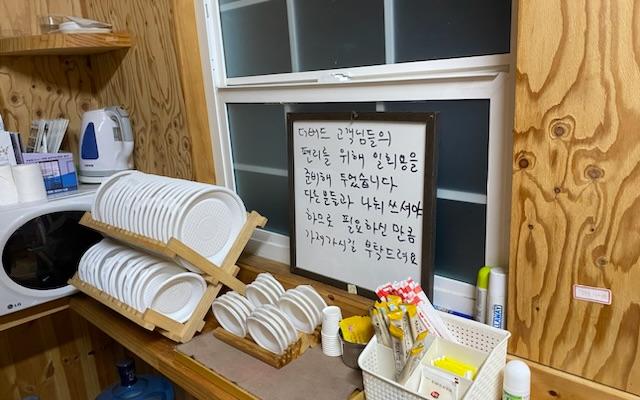 더버드 고객님들의
편리를 위해 일회용을
준비해 두었습니다
다른분들과 나눠 쓰셔야
하므로 필요하신 만큼
가져가시길 부탁드려요
LG